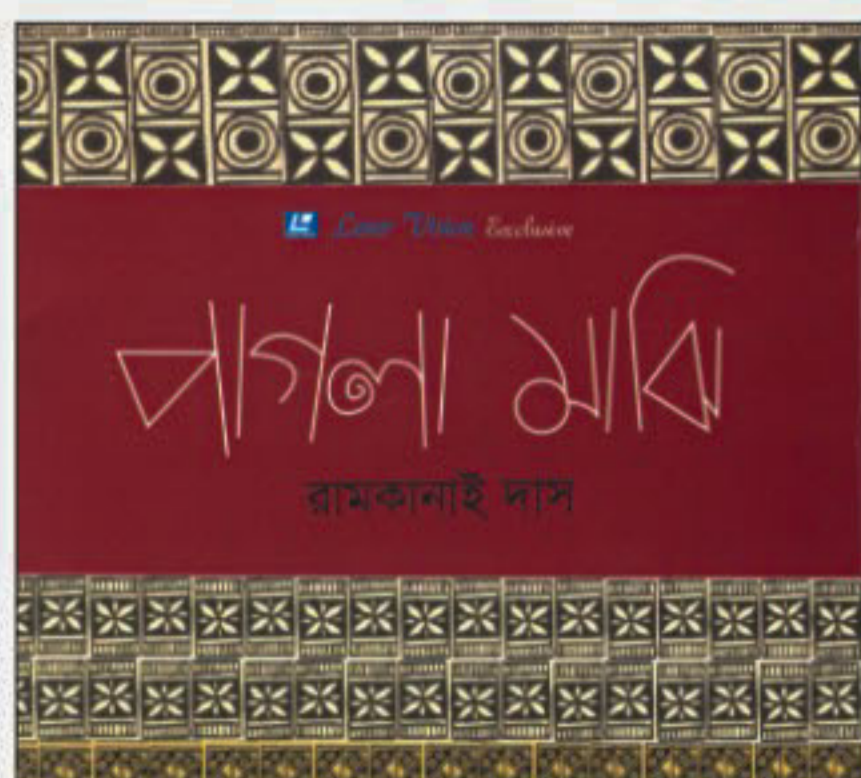 Laser Vision Exclusive
পাগলা মাঝি
রামকানাই দাস